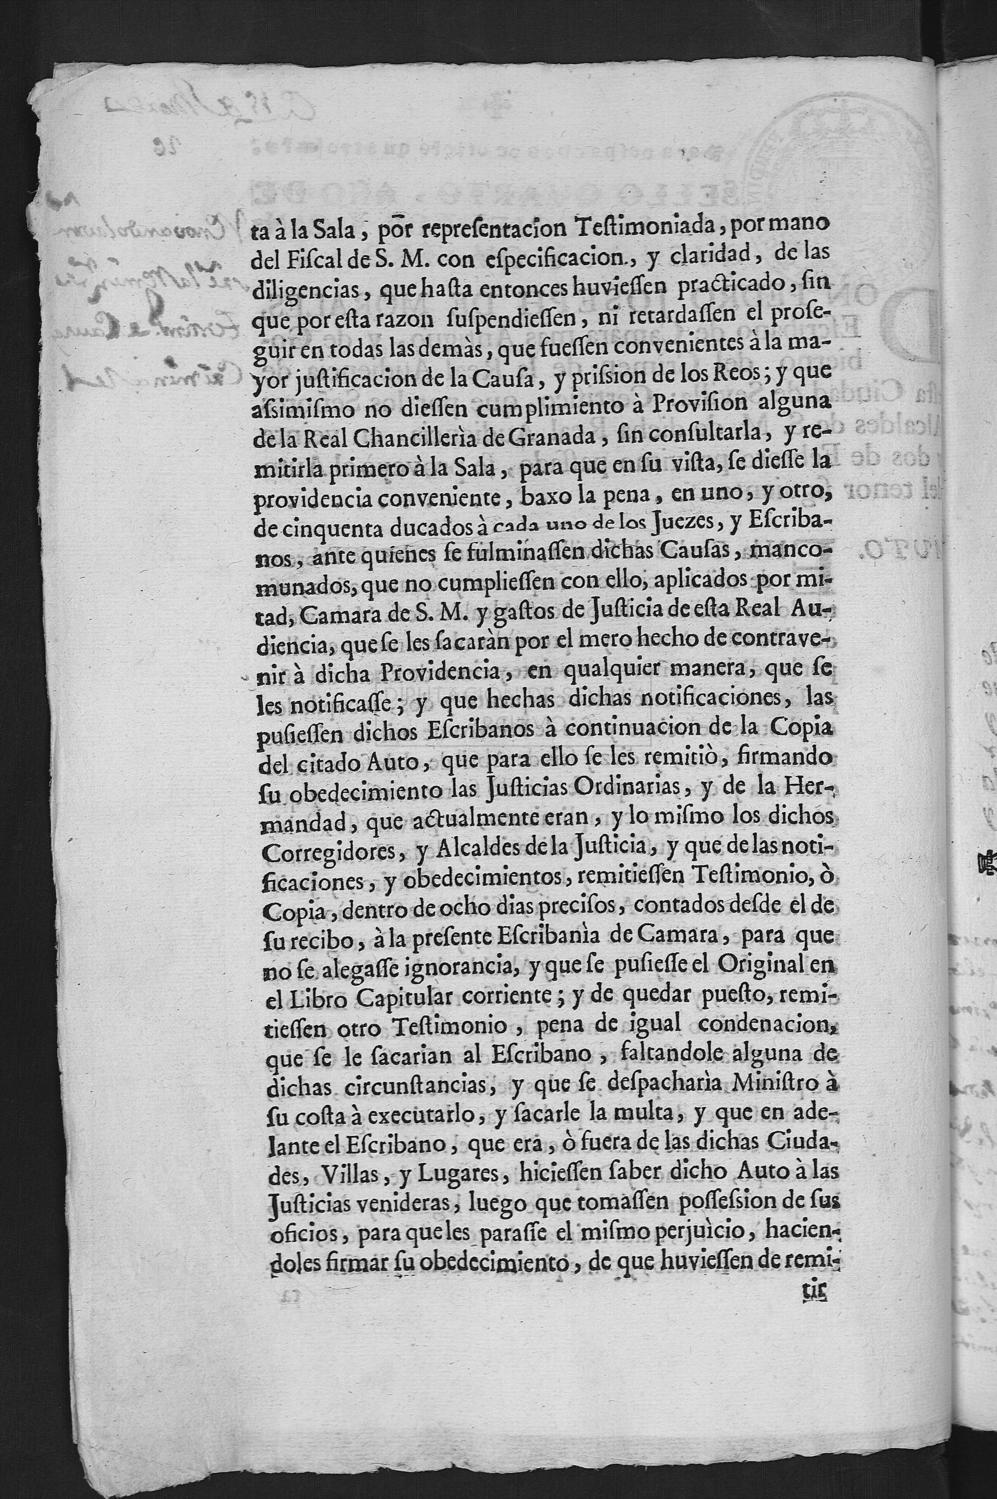 ta à la Sala, por representacion Testimoniada, por mano
del Fiscal de S. M. con especificacion., y claridad, de las
diligencias, que hasta entonces huviessen practicado, sin
que por esta razon suspendiessen, ni retardassen el prose-
guir en todas las demàs, que fuessen convenientes à la ma-
yor justificacion de la Causa, y prission de los Reos; y que
assimismo no diessen cumplimiento à Provision alguna
de la Real Chancillerìa de Granada, sin consultarla, y re-
mitirla primero à la Sala, para que en su vista, se diesse la
providencia conveniente, baxo la pena, en uno, y otro,
de cinquenta ducados à cada uno de los Juezes, y Escriba-
nos, ante quienes se fulminassen dichas Causas, manco-
munados, que no cumpliessen con ello, aplicados por mi-
tad, Camara de S. M. y gastos de Justicia de esta Real Au-
diencia, que se les sacaràn por el mero hecho de contrave-
nir à dicha Providencia, en qualquier manera, que se
les notificasse; y que hechas dichas notificaciones, las
pusiessen dichos Escribanos à continuacion de la Copia
del citado Auto, que para ello se les remitiò, firmando
su obedecimiento las Justicias Ordinarias, y de la Her-
mandad, que actualmente eran, y lo mismo los dichos
Corregidores, y Alcaldes de la Justicia, y que de las noti-
ficaciones, y obedecimientos, remitiessen Testimonio, ò
Copia, dentro de ocho dias precisos, contados desde el de
su recibo, à la presente Escribanìa de Camara, para que
no se alegasse ignorancia, y que se pusiesse el Original en
el Libro Capitular corriente; y de quedar puesto, remi-
tiessen otro Testimonio, pena de igual condenacion,
que se le sacarian al Escribano, faltandole alguna de
dichas circunstancias, y que se despacharìa Ministro à
su costa à executarlo, y sacarle la multa, y que en ade-
lante el Escribano, que era, ò fuera de las dichas Ciuda-
des, Villas, y Lugares, hiciessen saber dicho Auto à las
Justicias venideras, luego que tomassen possession de sus
oficios, para que les parasse el mismo perjuìcio, hacien-
doles firmar su obedecimiento, de que huviessen de remi-
tir